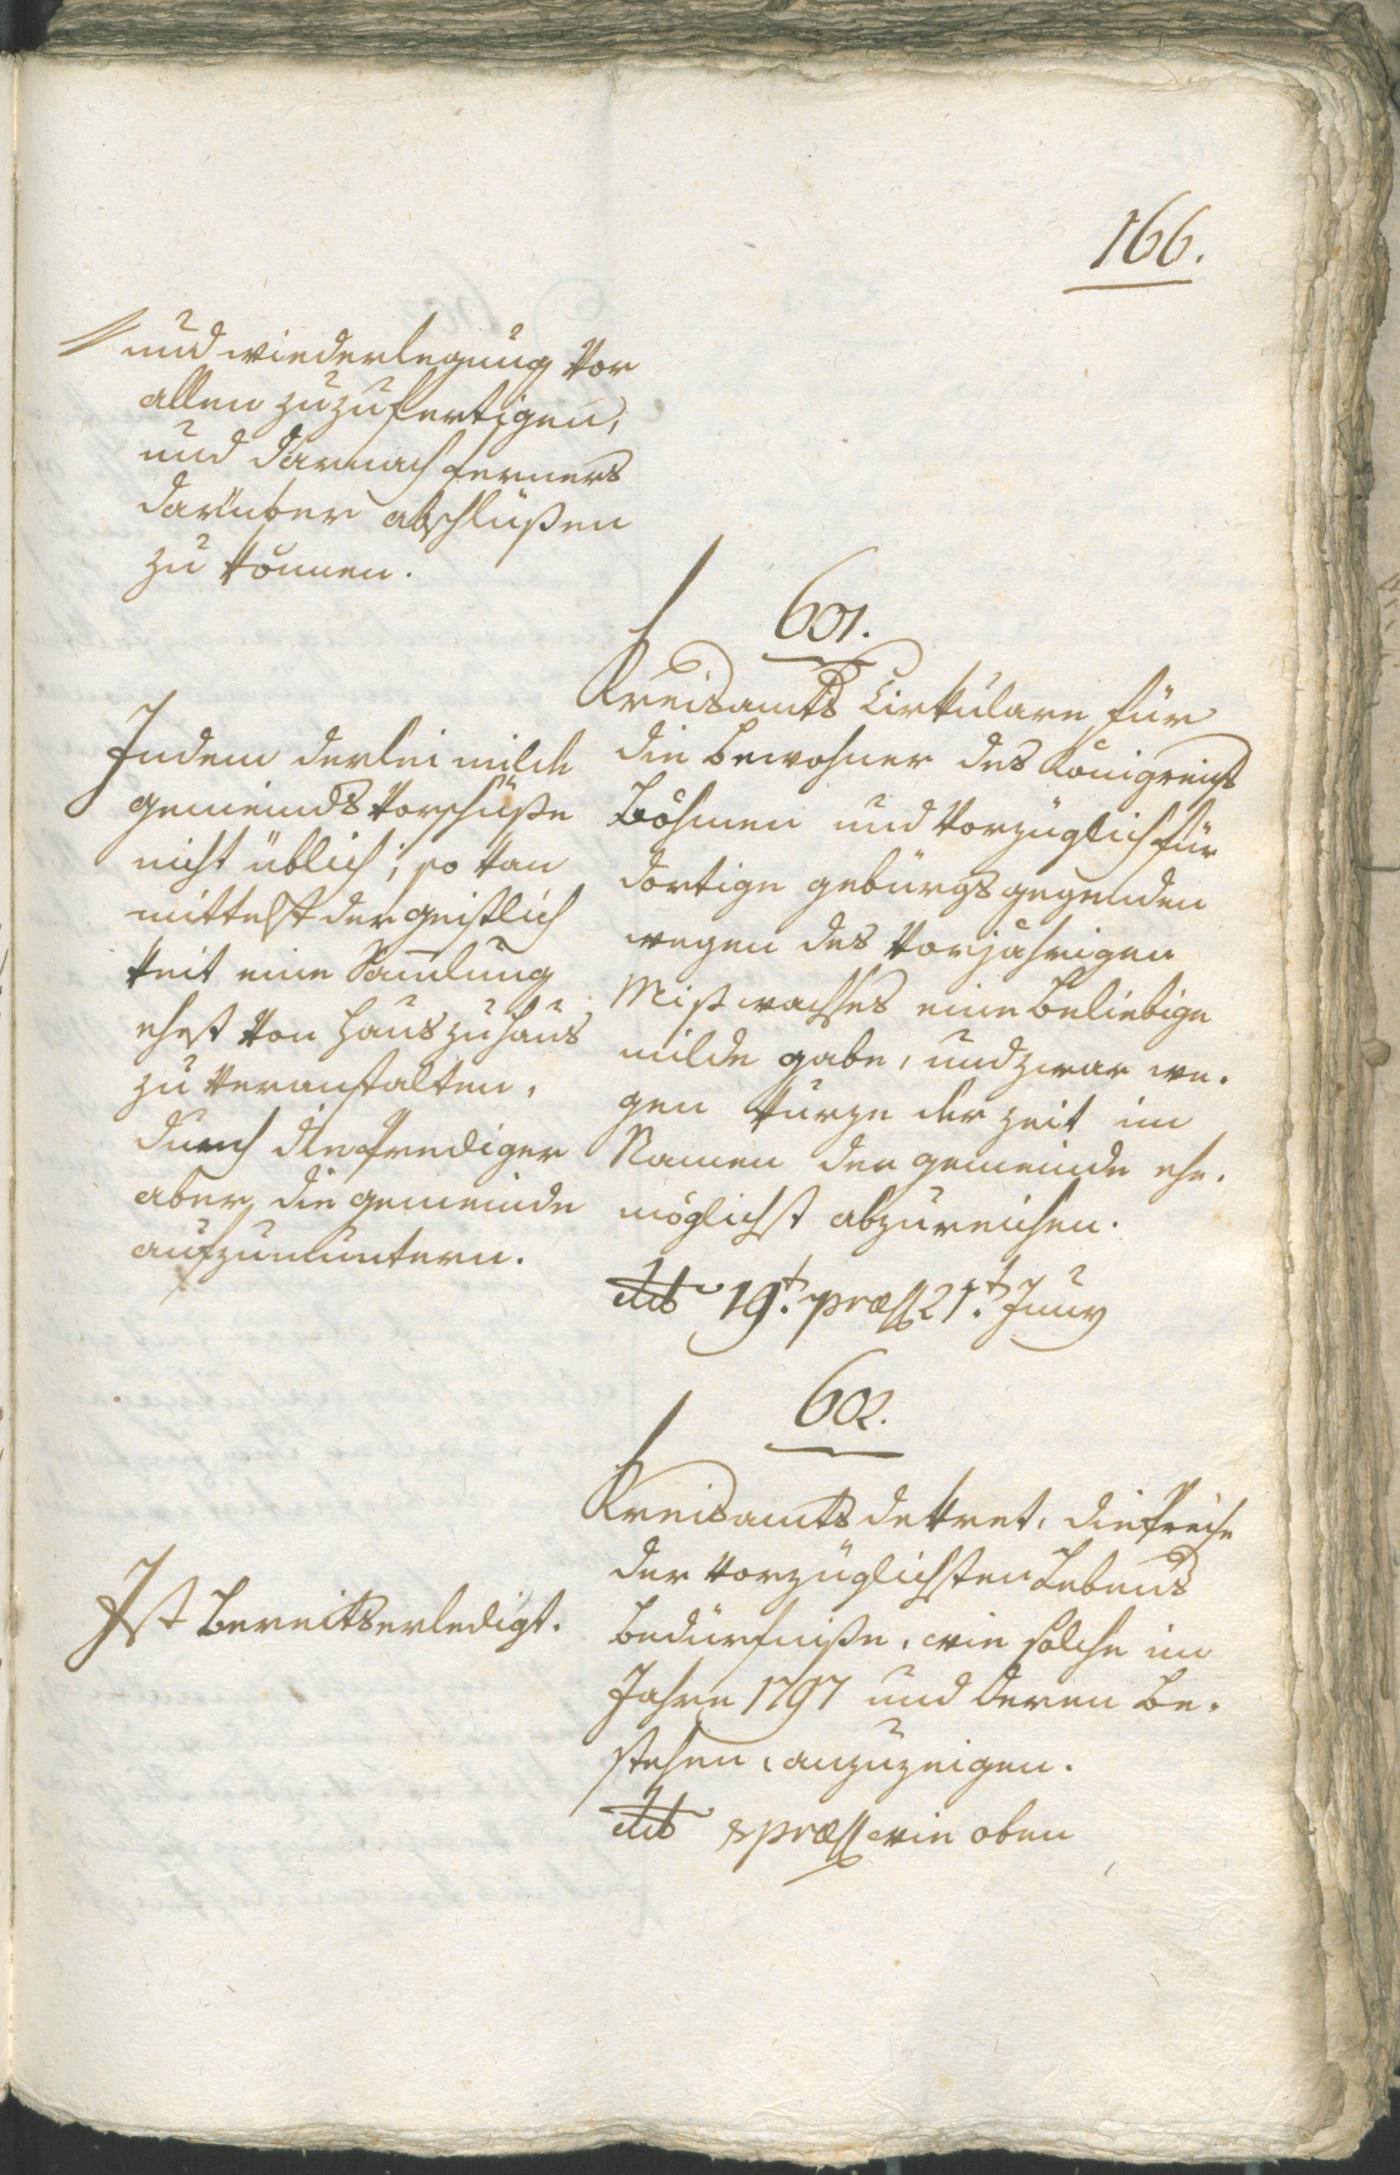 166.
und wiederlegung vor
allen zuzufertigen,
und darnach ferners
darüber abschlüßen
zu können.
601.
Kreisamts Cirkulare für
die Bewohner des Königreichs
Böhmen und vorzüglich für
dortige gebürgs gegenden
wegen des vorjährigen
Mißwachses eine beliebige
milde gabe, und zwar we-
gen kürze der zeit im
Namen der gemeinde ehe-
möglichst abzureichen.
19t. præs 21t. Juny
Indem derlei milde
gemeinds vorschüße
nicht üblich; so kan
mittelst der geistlich
keit eine Samlung
ehest von haus zu haus
zu veranstalten,
durch die prediger
aber die gemeinde
aufzumuntern.
602.
Kreisamts dekret, die preise
der vorzüglichsten Lebens
bedürfniße, wie solche im
Jahre 1797 und deren be-
stehen, anzuzeigen.
præs wie oben
Ist bereits erledigt.